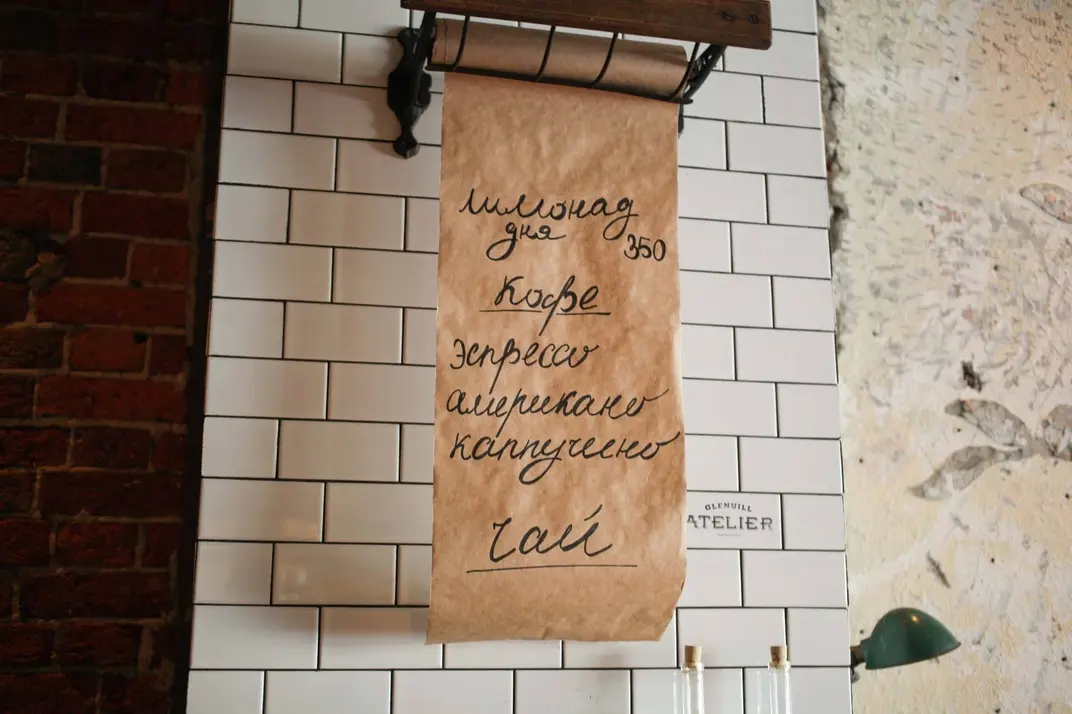 лимонад
дня
350
Кофе
эспрессо
американо
каппучино
Чай
GLENUILL
ATELIER